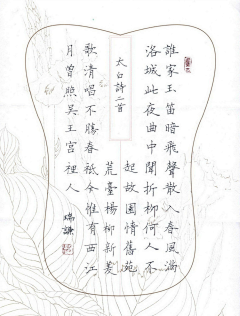 太白詩二首
誰家玉笛暗飛聲散入春風滿
洛城此夜曲中聞折柳何人不
起故園情舊苑
荒臺楊柳新菱
歌清唱不勝春祗今惟有西江
月曾照吳王宮裡人